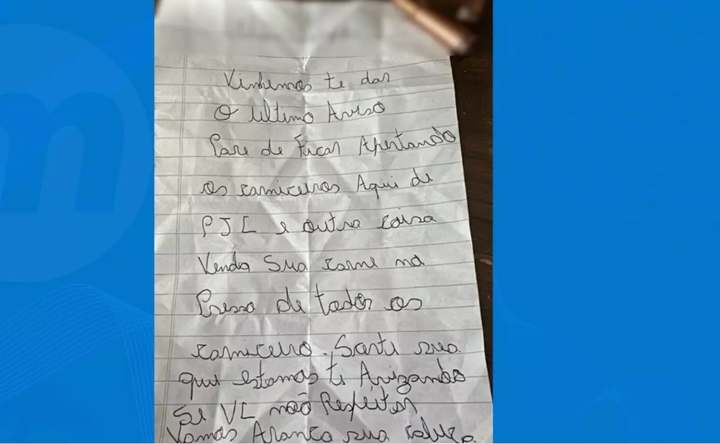 Venhemos te dar
O Ultimo Aviso
Pare de Ficar Apertando
os carniceiros Aqui de
PJL e outra coisa
Venda Sua carne na
Preso de todos os
carniceiro. Santi suo
que estamos ti Avizando
Se VC não Respeitar
Vamos Aranca sua cabeça